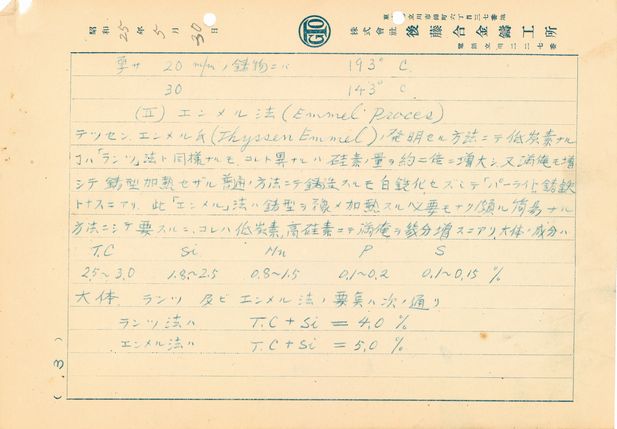 昭和25年5月30日
GTO
株式会社 後藤合金鑄工所
厚サ 20 m/m ノ鋳物ニハ 193° C.
30 143° C.
(Ⅱ) エンメル法 (Emmel Proces)
テッセン、エンメル氏 (Thyssen Emmel) ノ発明セル方法ニテ低炭素ナル
コハ「ランツ」法ト同様ナルモ コレト異ナルハ 硅素ノ量ヲ約二倍ニ増大シ 又満俺モ増
シテ 鋳型加熱セザル 普通ノ方法ニテ鋳造スルモ白銑化セズシテ「パーライト」鋳鉄
トナスニアリ、此「エンメル」法ハ鋳型ヲ豫メ加熱スル必要モナク頗ル簡易ナル
方法ニシテ要スルニ、コレハ低炭素、高硅素ニテ満俺ヲ幾分増スニアリ大体ノ成分ハ
T.C Si Mn P S
2.5~3.0 1.8~2.5 0.8~1.5 0.1~0.2 0.1~0.15 %
大体 ランツ 及ビ エンメル法ノ要点ハ次ノ通リ
ランツ法ハ T.C + Si = 4.0 %
エンメル法ハ T.C + Si = 5.0 %
( .3 )